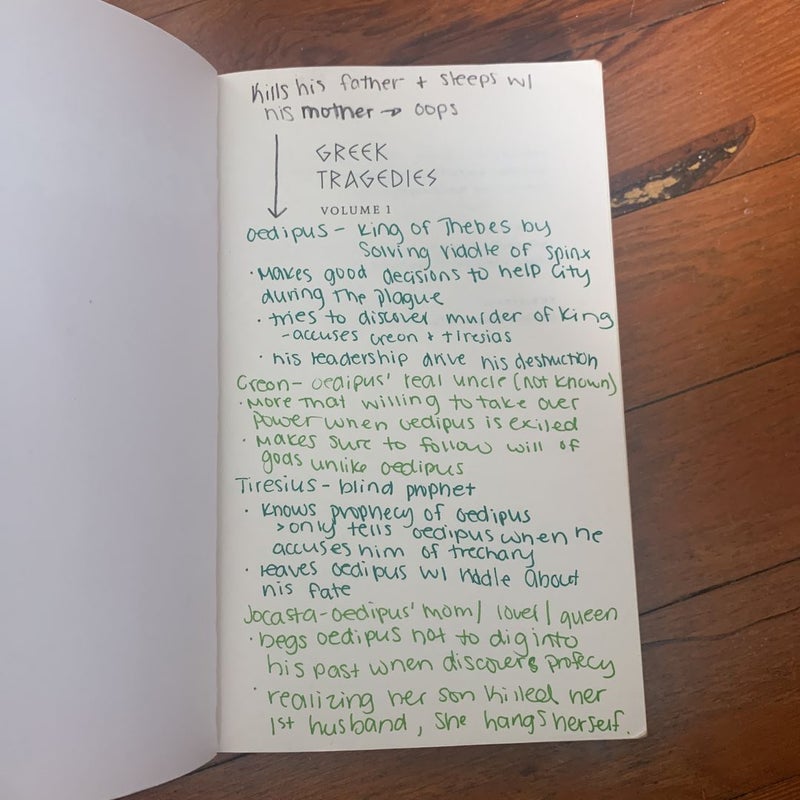 Kills his father + sleeps w/
his mother → oops
GREEK
TRAGEDIES
VOLUME 1
Oedipus - King of Thebes by
Solving riddle of Spinx
· Makes good decisions to help city
during the plague
· tries to discover murder of King
- accuses creon + tiresias
· his leadership drive his destruction
Creon - Oedipus' real uncle (not known)
· More that willing to take over
power when oedipus is exiled
· Makes sure to follow will of
gods unlike oedipus
Tiresius - blind prophet
· Knows prophecy of oedipus
> only tells oedipus when he
accuses him of trechary
· leaves oedipus w/ riddle about
his fate
Jocasta - oedipus' mom / lover / queen
· begs oedipus not to dig into
his past when discovers profecy
· realizing her son killed her
1st husband, she hangs herself.